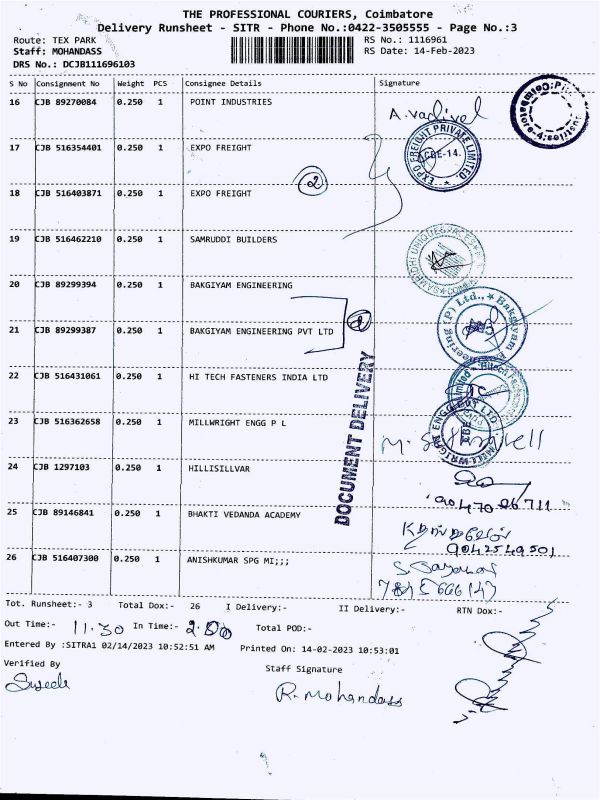 THE PROFESSIONAL COURIERS, Coimbatore
Delivery Runsheet - SITR - Phone No.:0422-3505555 - Page No.:3
Route: TEX PARK RS No.: 1116961
Staff: MOHANDASS RS Date: 14-Feb-2023
DRS No.: DCJB111696103
S No Consignment No Weight PCS Consignee Details Signature
16 CJB 89270084 0.250 1 POINT INDUSTRIES
A. vadivel
17 CJB 516354401 0.250 1 EXPO FREIGHT
EXPO FREIGHT PRIVATE LIMITED
CBE-14.
2
18 CJB 516403871 0.250 1 EXPO FREIGHT
19 CJB 516462210 0.250 1 SAMRUDDI BUILDERS
20 CJB 89299394 0.250 1 BAKGIYAM ENGINEERING
21 CJB 89299387 0.250 1 BAKGIYAM ENGINEERING PVT LTD
22 CJB 516431061 0.250 1 HI TECH FASTENERS INDIA LTD
DOCUMENT DELIVERY
23 CJB 516362658 0.250 1 MILLWRIGHT ENGG P L
24 CJB 1297103 0.250 1 HILLISILLVAR
90470 26711
25 CJB 89146841 0.250 1 BHAKTI VEDANDA ACADEMY
9042549501
26 CJB 516407300 0.250 1 ANISHKUMAR SPG MI;;;
Tot. Runsheet:- 3 Total Dox:- 26 I Delivery:- II Delivery:- RTN Dox:-
Out Time:- 11.30 In Time:- 2.00 Total POD:-
Entered By :SITRA1 02/14/2023 10:52:51 AM Printed On: 14-02-2023 10:53:01
Verified By Staff Signature
R. Mohandass